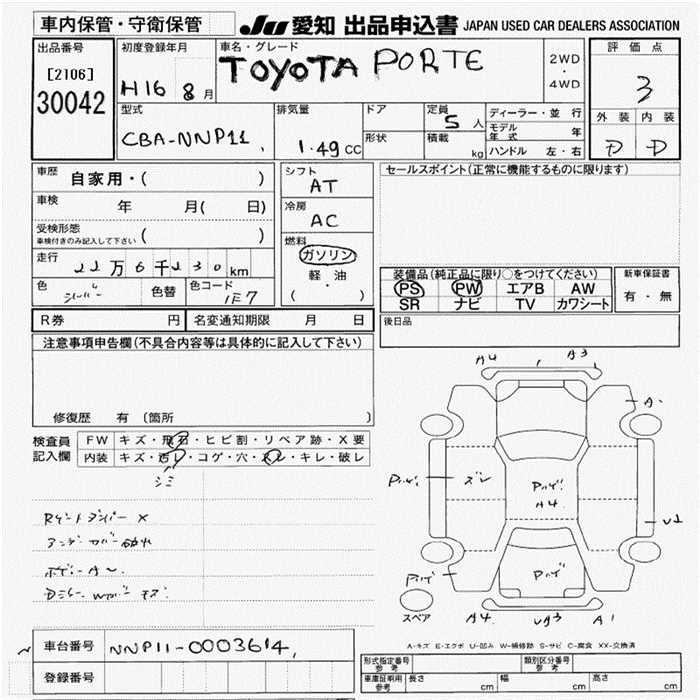 車内保管・守衛保管
JU 愛知 出品申込書 JAPAN USED CAR DEALERS ASSOCIATION
出品番号
[2106]
30042
初度登録年月
H16 8月
車名・グレード
TOYOTA PORTE
2WD
・
4WD
評価点
3
外装 内装
D D
型式
CBA-NNP11
排気量
1.49 CC
ドア
形状
定員
5人
積載
kg
ディーラー・並行
モデル年式 年
ハンドル 左・右
車歴
自家用・( )
車検
年 月( 日)
受検形態
車検付きのみ記入して下さい ( )
走行
22万6千230km
色
シルバー
色替
色コード
1E7
シフト
AT
冷房
AC
燃料
ガソリン
軽油
・
( )
セールスポイント(正常に機能するものに限ります)
装備品(純正品に限り○をつけてください)
PS PW エアB AW
SR ナビ TV カワシート
新車保証書
有・無
後日品
R券 円
名変通知期限 月 日
注意事項申告欄(不具合内容等は具体的に記入して下さい)
修復歴 有 (箇所 )
検査員
記入欄
FW キズ・飛石・ヒビ割・リペア跡・X要
内装 キズ・汚レ・コゲ・穴・スレ・キレ・破レ
シミ
アンダーカバー
ボデー A〜
A4 A3
A
ズレ
A4
U1
A4 UA3 A1
スペア
A-キズ E-エクボ U-凹み W-補修跡 S-サビ C-腐食 XX-交換済
車台番号
NNP11-0003614
登録番号
形式指定番号
参考
類別区分番号
参考
車庫証明用
参考
長さ cm 幅 cm 高さ cm